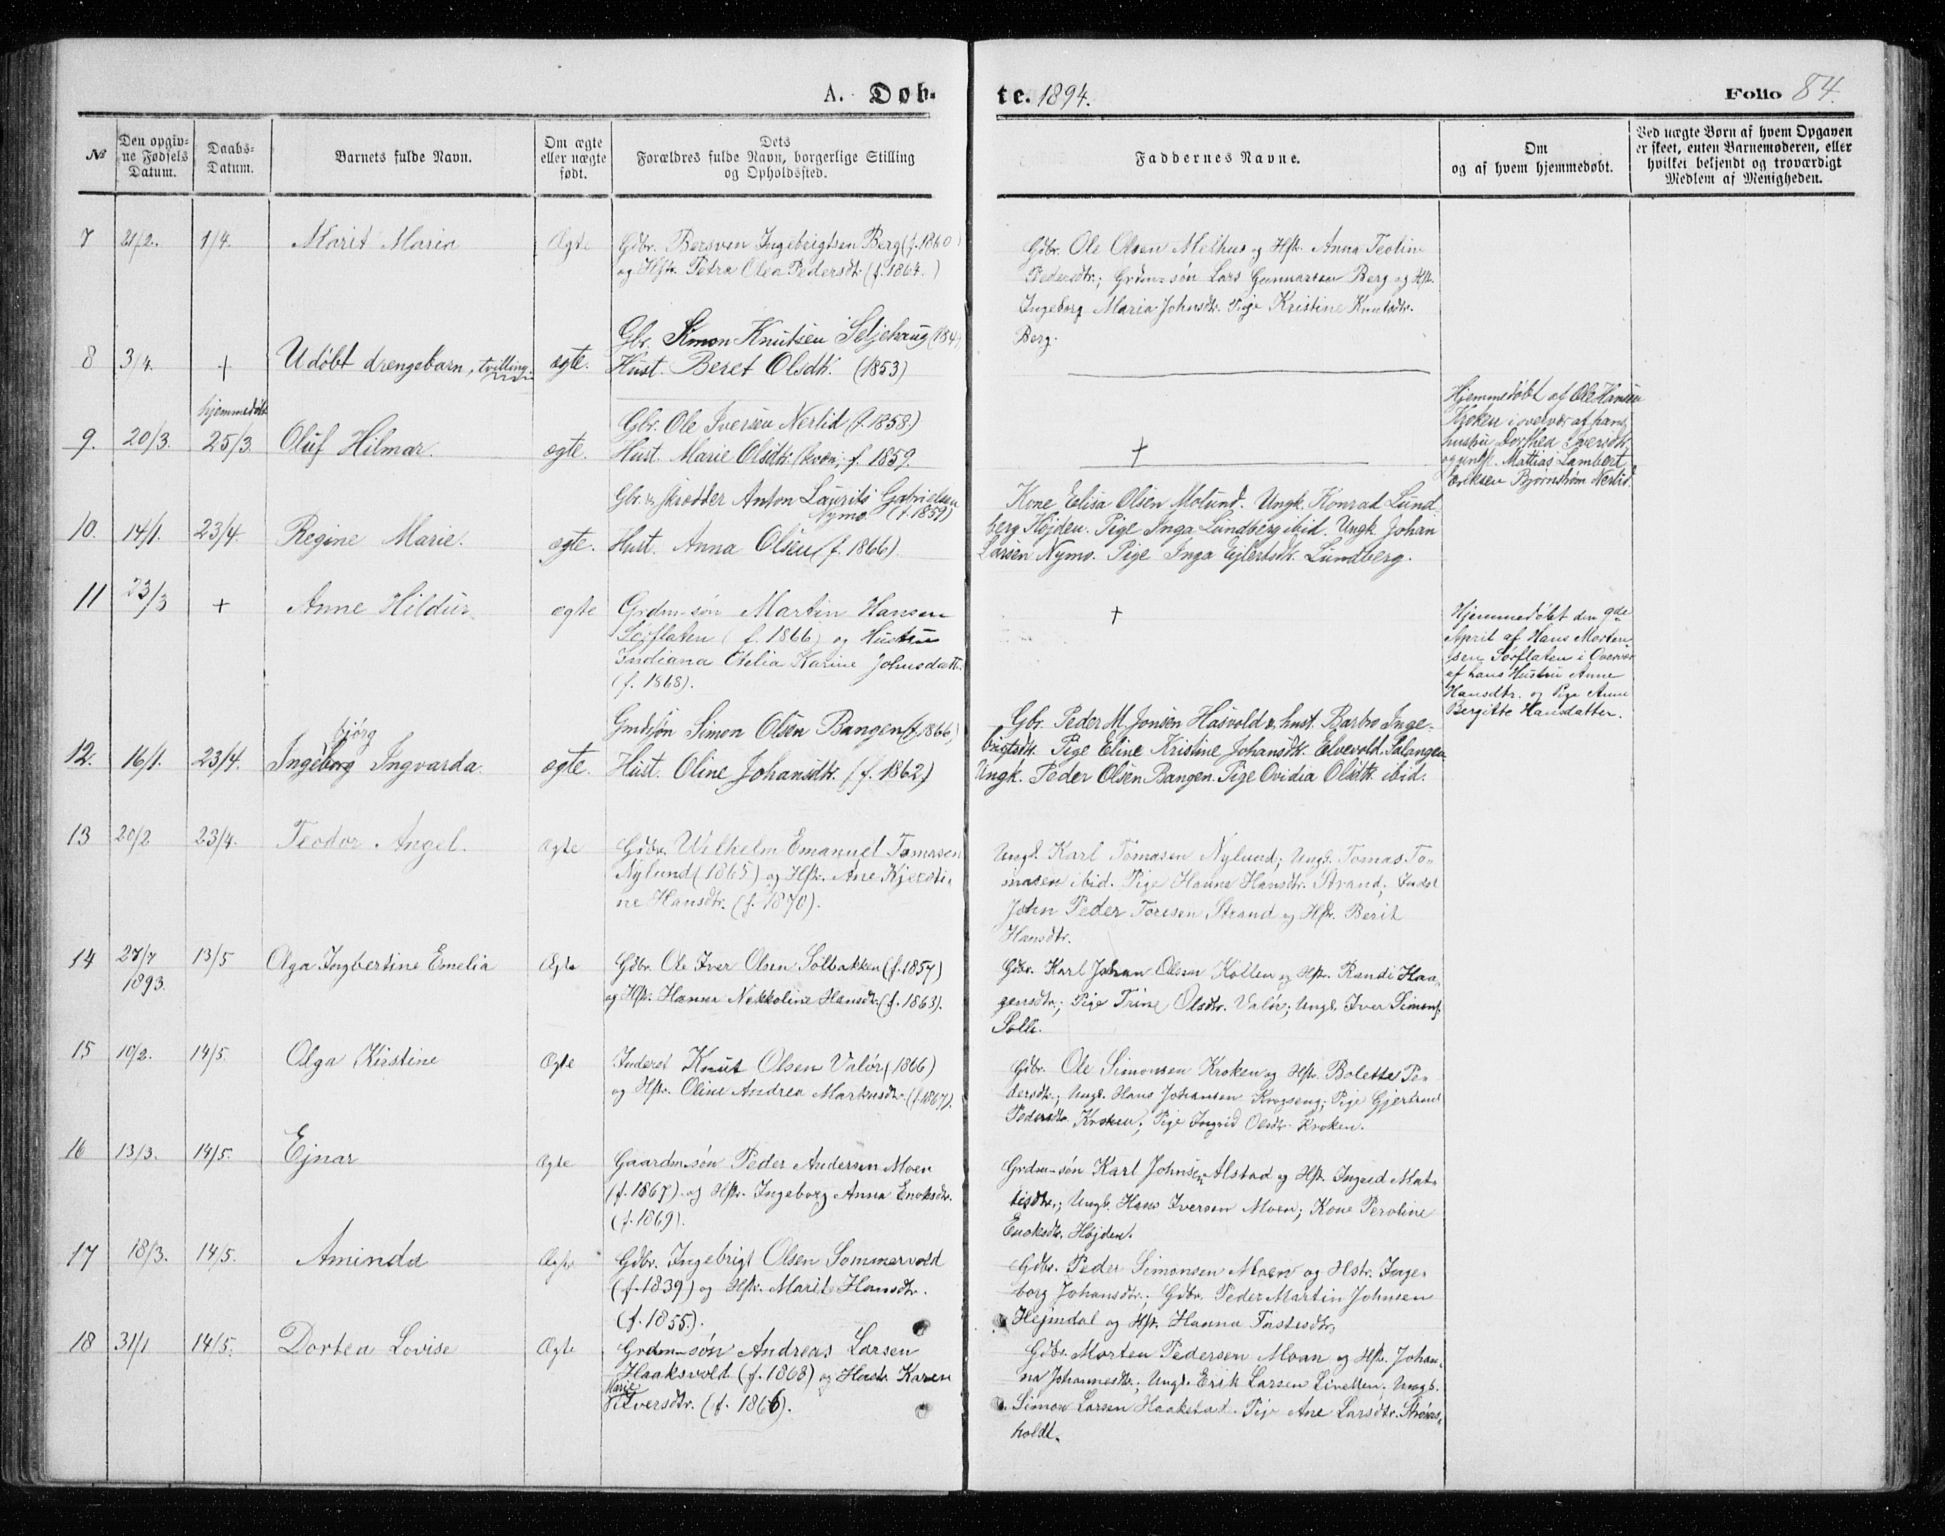 A. Døb-
te. 1894.
Folio 84.
№
Den opgiv-
ne Fødsels
Datum.
Daabs-
Datum.
Barnets fulde Navn.
Om ægte
eller uægte
født.
Dets
Forældres fulde Navn, borgerlige Stilling
og Opholdssted.
Faddernes Navne.
Om
og af hvem hjemmedøbt.
Ved uægte Børn af hvem Opgaven
er skeet, enten Barnemoderen, eller
hvilket betjendt og troværdigt
Medlem af Menigheden.
7 21/2. 1/4. Marit Maria Ægte
Gdbr. Bersven Ingebrigtsen Berg (f. 1860)
og Hstr. Petra Olea Pedersdtr. (f. 1864.)
Gdbr. Ole Olsen Melhus og Hstr. Anna Teoline
Pedersdtr.; Grdm-søn Lars Gunnarsen Berg og Hstr.
Ingeborg Maria Johnsdtr. Pige Kristine Knutsdtr.
Berg.
8 3/4. + Udøbt drengebarn, tvilling. ægte.
Gbr. Simon Knutsen Seljehaug (184
Hust. Beret Olsdtr. (1853)
hjemmedøbt
9. 20/3. 25/3. Oluf Hilmar. ægte.
Gbr. Ole Iversen Nerlid (f. 1858)
Hust. Marie Olsdtr. (kvæn; f. 1859.
+
Hjemmedøbt af Ole Hansen
Kroken i overvær af hans
hustru Dorthea Iversdtr.
og Mattias Lambert
Eriksen Bjørnstrøm Nerlid.
10. 14/1. 23/4. Regine Marie. ægte.
Gbr. & skrædder Anton Laurits Gabrielsen
Nymo (f. 1859)
Hust. Anna Olsen (f. 1866).
Kone Elisa Olsen Molund. Ungk. Konrad Lund
berg Højden. Pige Inga Lundberg ibid. Ungk. Johan
Larsen Nymo. Pige Inga Ejlertsdtr. Lundberg.
11 23/3 + Anne Hildur ægte
Grdm-søn Martin Hansen
Sørflaten (f. 1866) og Hustru
Indiana Otelia Karine Johnsdatt.
(f. 1868).
+
Hjemmedøbt den 9de
April af Hans Morten
sen Sørflaten i Overvær
af hans Hustru Anne
Hansdtr. og Pige Anne
Bergitte Hansdatter.
12. 16/1. 23/4. Ingeborg Ingvarda. ægte.
bjørg
Gmdsøn Simon Olsen Bangen (f. 1866)
Hust. Oline Johansdtr. (f. 1862)
Gbr. Peder M. Jonsen Haavold & hust. Barbro Inge-
brigtsdtr. Pige Eline Kristine Johansdtr. Elvevold Salangen.
Ungk. Peder Olsen Bangen. Pige Ovidia Olsdtr. ibid.
13 20/2 23/4. Teodor Angel. Ægte
Gdbr. Wilhelm Emanuel Tomasen
Nylund (1865) og Hstr. Ane Kjersti-
ne Hansdtr. (f. 1870).
Ungk. Karl Tomasen Nylund; Ungk. Tomas To-
masen ibid. Pige Hanne Hansdtr. Strand; Inderst
John Peder Toresen Strand og Hstr. Berit
Hansdtr.
14 27/7 1893. 13/5 Olga Ingbertine Emelia Ægte
Gdbr. Ole Iver Olsen Solbakken (f. 1857)
og Hstr. Hanna Nekkoline Hansdtr. (f. 1863).
Gdbr. Karl Johan Olsen Kollen og Hstr. Randi Haa-
gensdtr.; Pige Trine Olsdtr. Valør; Ungk. Iver Simons.
Solli.
15 10/2. 14/5. Olga Kirstine Ægte
Inderst Knut Olsen Valør (1866)
og Hstr. Oline Andrea Markusdtr. (f. 1867).
Gdbr. Ole Simonsen Kroken og Hstr. Bolette Pe-
dersdtr.; Ungk. Hans Johansen Krogseng; Pige Gjertrud
Pedersdtr. Kroken; Pige Ingrid Olsdtr. Kroken.
16 13/3. 14/5. Ejnar Ægte
Gaardm-søn Peder Andersen Moen
(f. 1867) og Hstr. Ingeborg Anna Enoksdtr.
(f. 1869).
Grdm-søn Karl Johnsen Alstad og Hstr. Ingrid Mat-
tisdtr.; Ungk. Hans Iversen Moen; Kone Peroline
Enoksdtr. Højden.
17 18/3. 14/5. Aminda Ægte
Gdbr. Ingebrigt Olsen Sommervold
(f. 1839) og Hstr. Marit Hansdtr.
(f. 1855.).
Gdbr. Peder Simonsen Moen og Hstr. Inge-
borg Johansdtr.; Gdbr. Peder Martin Johnsen
Hejmdal og Hstr. Hanna Tostesdtr.
18 31/1 14/5. Dortea Lovise Ægte
Grdm-søn Andreas Larsen
Haaksvold (f. 1868) og Hustr. Karen
Marie
Siversdtr. (f. 1866).
Gdbr. Morten Pedersen Moan og Hstr. Johan-
na Johannesdtr.; Ungk. Erik Larsen Livelten; Ungk.
Simon Larsen Haakstad. Pige Ane Larsdtr. Strøms-
holdt.